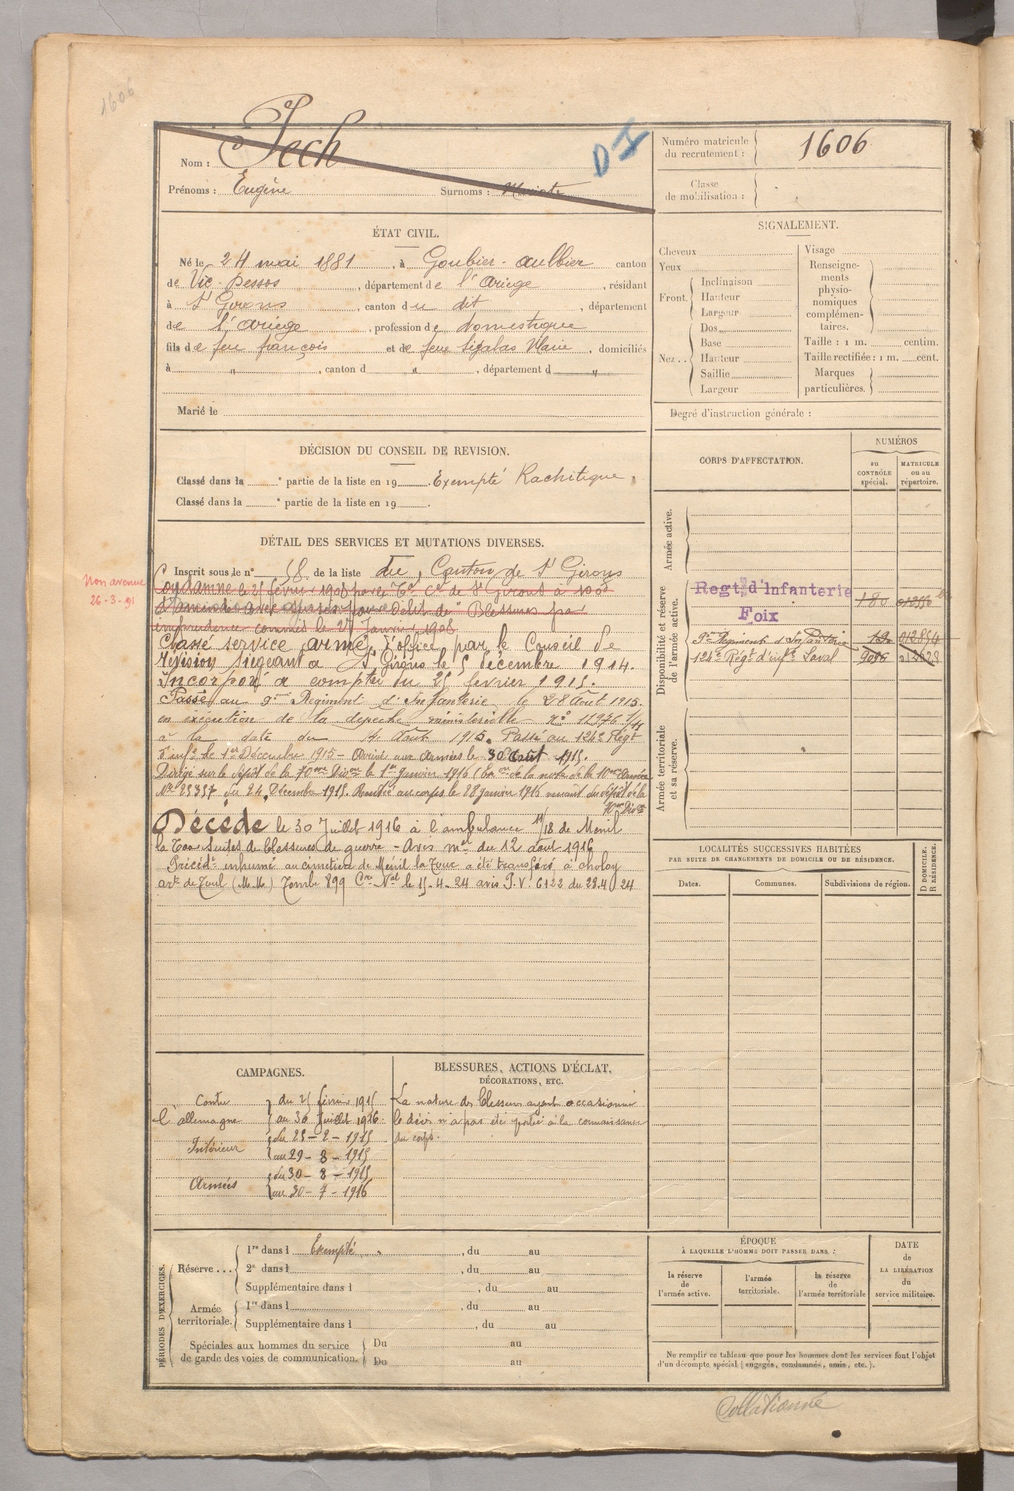 1606
Nom : Pech
D I
Prénoms : Eugène Surnoms :
Numéro matricule du recrutement : 1606
Classe de mobilisation :
ÉTAT CIVIL.
Né le 24 mai 1881, à Goulier-aulbier canton
de Vic-Dessos, département de l'Ariège, résidant
à St Girons, canton du dit, département
de l'Ariège, profession de domestique
fils de feu françois et de feue Sigalas Marie, domiciliés
à " , canton d " , département d "
Marié le
SIGNALEMENT.
Cheveux
Yeux
Front. Inclinaison
Hauteur
Largeur
Dos
Nez .. Base
Hauteur
Saillie
Largeur
Visage
Renseignements physionomiques complémentaires.
Taille : 1 m. centim.
Taille rectifiée : 1 m. cent.
Marques particulières.
Degré d'instruction générale :
DÉCISION DU CONSEIL DE REVISION.
Classé dans la e partie de la liste en 19 . Exempté Rachitique.
Classé dans la e partie de la liste en 19 .
CORPS D'AFFECTATION.
NUMÉROS
au CONTRÔLE spécial.
MATRICULE ou au répertoire.
Armée active.
Disponibilité et réserve de l'armée active.
Regt d'Infanterie
Foix
180
9e Régiment d'Infanterie
124e Régt d'infie Laval
Armée territoriale et sa réserve.
DÉTAIL DES SERVICES ET MUTATIONS DIVERSES.
Inscrit sous le n° 58 de la liste du Canton de St Girons
Non avenue
26-3-31
Condamné le 25 février 1908 par le Tal Cel de St Girons à 100f
d'amende avec sursis pour Délit de "Blessures par
imprudence commis le 27 Janvier 1908
Classé service armé d'office par le Conseil de
Révision siégeant à St Girons le 5 décembre 1914.
Incorporé à compter du 25 février 1915.
Passé au 9me Régiment d'Infanterie le 28 Août 1915.
en exécution de la dépêche ministérielle n°
à la date du 4 Août 1915. Passé au 124e Régt
d'infie le 1er Décembre 1915 - Arrivé aux Armées le 30 Août 1915.
Dirigé sur le dépôt de la 70me Divon le 1er Janvier 1916 (Exon de la note de la 10me Armée
No 23357 du 24 Décembre 1915. Rentré au corps le 28 janvier 1916 venant du dépôt de la
70me Divon
Décédé le 30 Juillet 1916 à l'ambulance 11/18 de Menil
la Tour Suites de blessures de guerre - Avis mel du 12 août 1916
Précédt inhumé au cimetière de Ménil la Tour a été transféré à choloy
art de Toul (M. M.) Tombe 899 Cre Nal le 15-4-24 avis P.V. 6122 du 28.4.24
LOCALITÉS SUCCESSIVES HABITÉES
PAR SUITE DE CHANGEMENTS DE DOMICILE OU DE RÉSIDENCE.
Dates.
Communes.
Subdivisions de région.
D DOMICILE. R RÉSIDENCE.
CAMPAGNES.
Contre l'allemagne du 25 février 1915
au 30 Juillet 1916
Intérieur du 25-2-1915
au 29-8-1915
Armées du 30-8-1915
au 30-7-1916
BLESSURES, ACTIONS D'ÉCLAT,
DÉCORATIONS, ETC.
La nature des blessures ayant occasionné
le décès n'a pas été portée à la connaissance
du corps.
PÉRIODES D'EXERCICES.
Réserve ... 1re dans l Exempté , du au
2e dans l , du au
Supplémentaire dans l , du au
Armée territoriale. 1re dans l , du au
Supplémentaire dans l , du au
Spéciales aux hommes du service de garde des voies de communication. Du au
Du au
ÉPOQUE
À LAQUELLE L'HOMME DOIT PASSER DANS :
la réserve de l'armée active.
l'armée territoriale.
la réserve de l'armée territoriale
DATE de LA LIBÉRATION du service militaire.
Ne remplir ce tableau que pour les hommes dont les services font l'objet
d'un décompte spécial (engagés, condamnés, omis, etc.).
Collationné